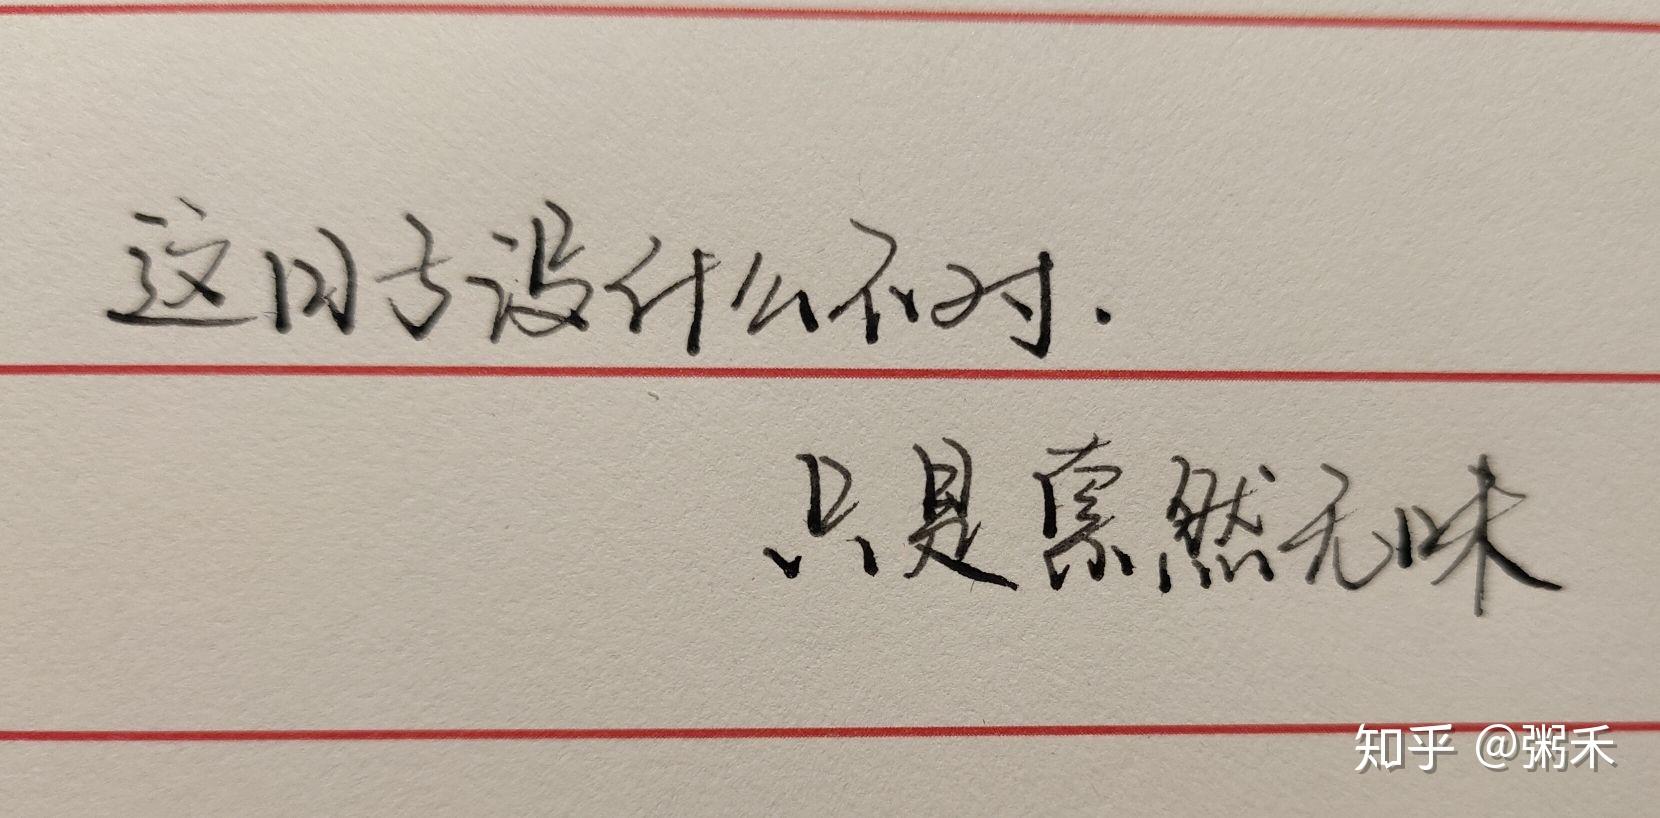 这日子没什么不对.
只是索然无味
知乎 @粥禾